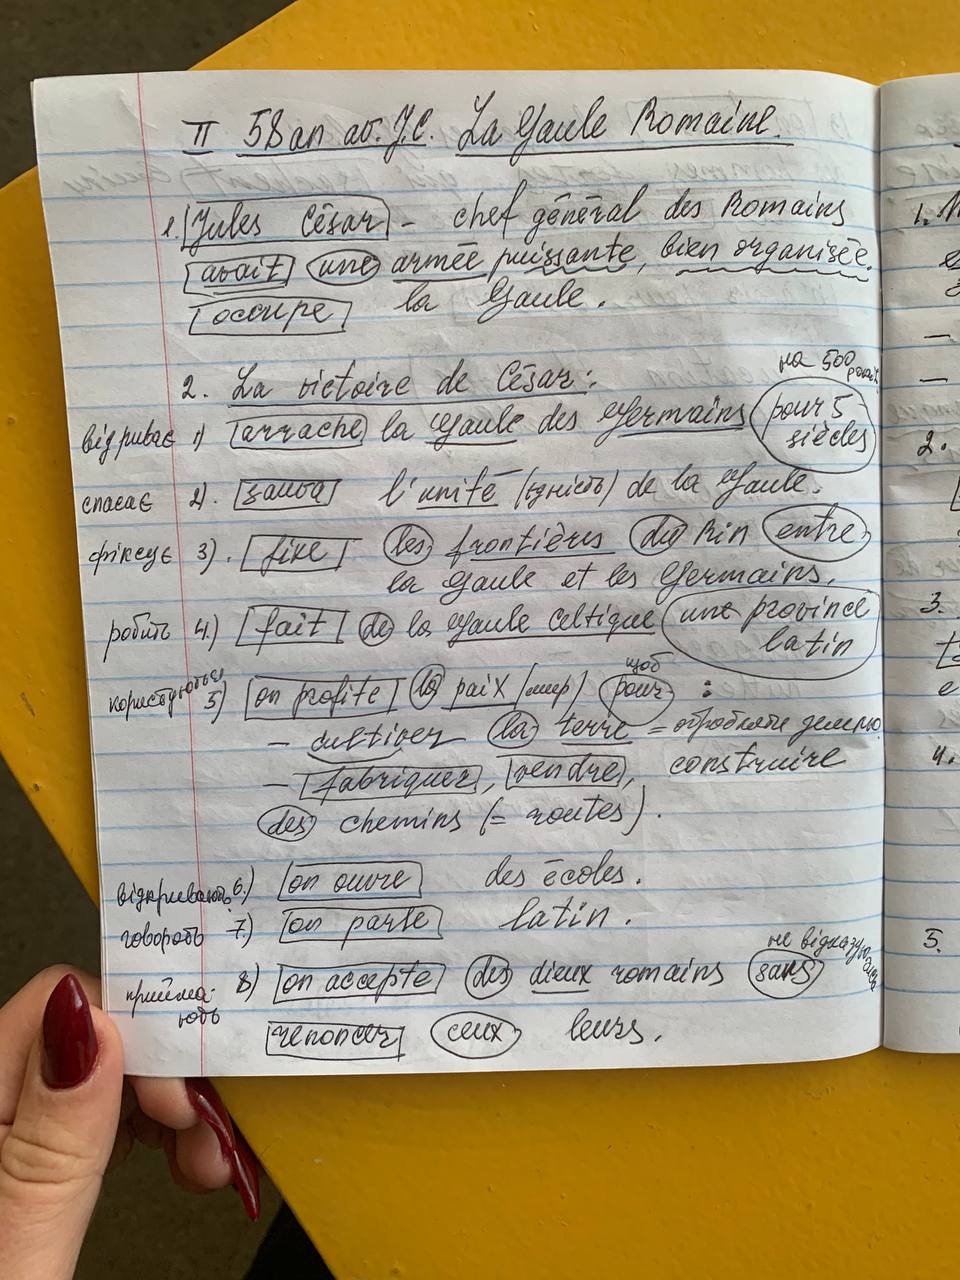 II 58 an av. J.C. La Gaule Romaine.
1. Jules César - chef général des Romains
avait une armée puissante, bien organisée.
occupe la Gaule.
на 500 років
2. La victoire de César:
відриває 1) arrache la Gaule des Germains pour 5
siècles
спасає 2). sauva l'unité (єдність) de la Gaule.
фіксує 3). fixe les frontières du Rin entre
la Gaule et les Germains.
робить 4.) fait de la Gaule Celtique une province
latin
щоб
користуються 5) on profite la paix (мир) pour :
- cultiver la terre = обробляти землю
- fabriquer, vendre, construire
des chemins (= routes).
відкривають 6.) on ouvre des écoles.
говорять 7.) on parle latin.
не відказуючись
прийма- 8) on accepte des dieux romains sans
ють
renoncer ceux leurs.
1.
2.
3.
e
4.
5.